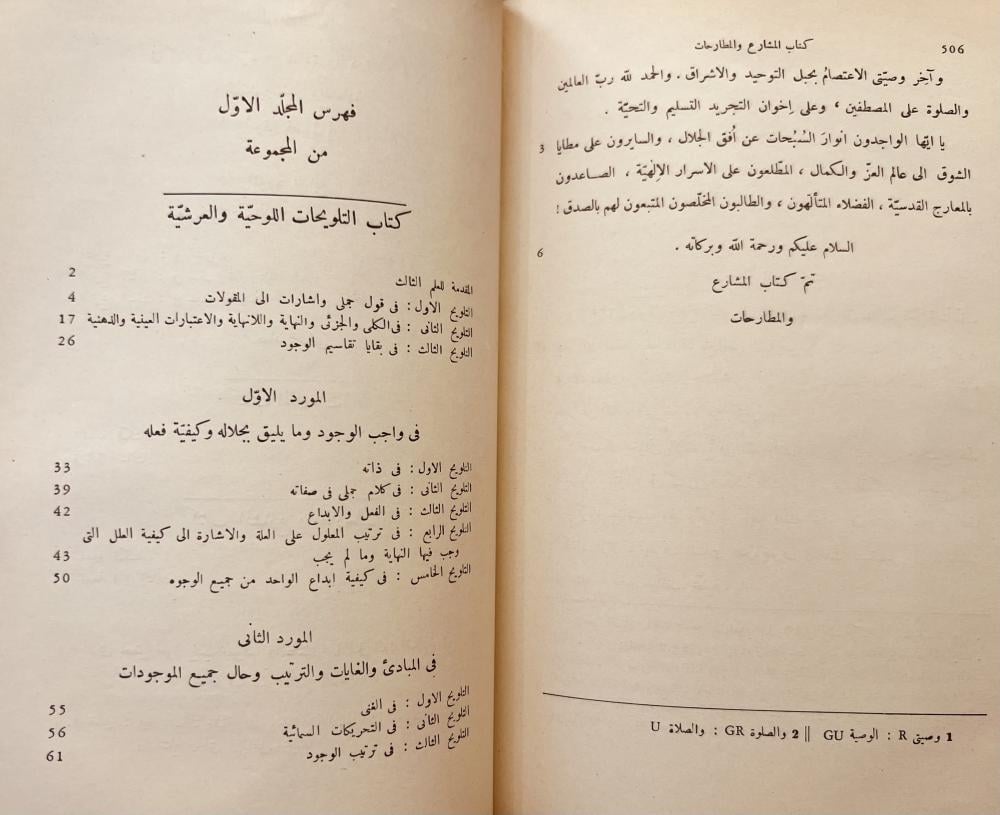 506
كتاب المشارع والمطارحات
وآخر وصيّتى الاعتصامُ بحبل التوحيد والاشراق . والحمد للّه ربّ العالمين
والصلوة على المصطفين ، وعلى إخوان التجريد التسليم والتحيّة .
يا ايّها الواجدون انوارَ السُبُحات عن اُفق الجلال ، والسايرون على مطايا 3
الشوق الى عالم العزّ والكمال ، المطّلعون على الاسرار الإلهيّة ، الصاعدون
بالمعارج القدسيّة ، الفضلاء المتألّهون ، والطالبون المخلّصون المتبعون لهم بالصدق !
السلام عليكم ورحمة اللّه وبركاته . 6
تمّ كتاب المشارع
والمطارحات
1 وصيتى R : الوصية GU || 2 والصلوة GR : والصلاة U
فهرس المجلّد الاوّل
من المجموعة
كتاب التلويحات اللوحيّة والعرشيّة
المقدمة للعلم الثالث 2
التلويح الاول : فى قول جملى واشارات الى المقولات 4
التلويح الثانى : فى الكلى والجزئى والنهاية واللانهاية والاعتبارات العينية والذهنية 17
التلويح الثالث : فى بقايا تقاسيم الوجود 26
المورد الاوّل
فى واجب الوجود وما يليق بجلاله وكيفيّة فعله
التلويح الاول : فى ذاته 33
التلويح الثانى : فى كلام جملى فى صفاته 39
التلويح الثالث : فى الفعل والابداع 42
التلويح الرابع : فى ترتيب المعلول على العلة والاشارة الى كيفية العلل التى
وجب فيها النهاية وما لم يجب 43
التلويح الخامس : فى كيفية ابداع الواحد من جميع الوجوه 50
المورد الثانى
فى المبادئ والغايات والترتيب وحال جميع الموجودات
التلويح الاول : فى الغنى 55
التلويح الثانى : فى التحريكات السمائية 56
التلويح الثالث : فى ترتيب الوجود 61